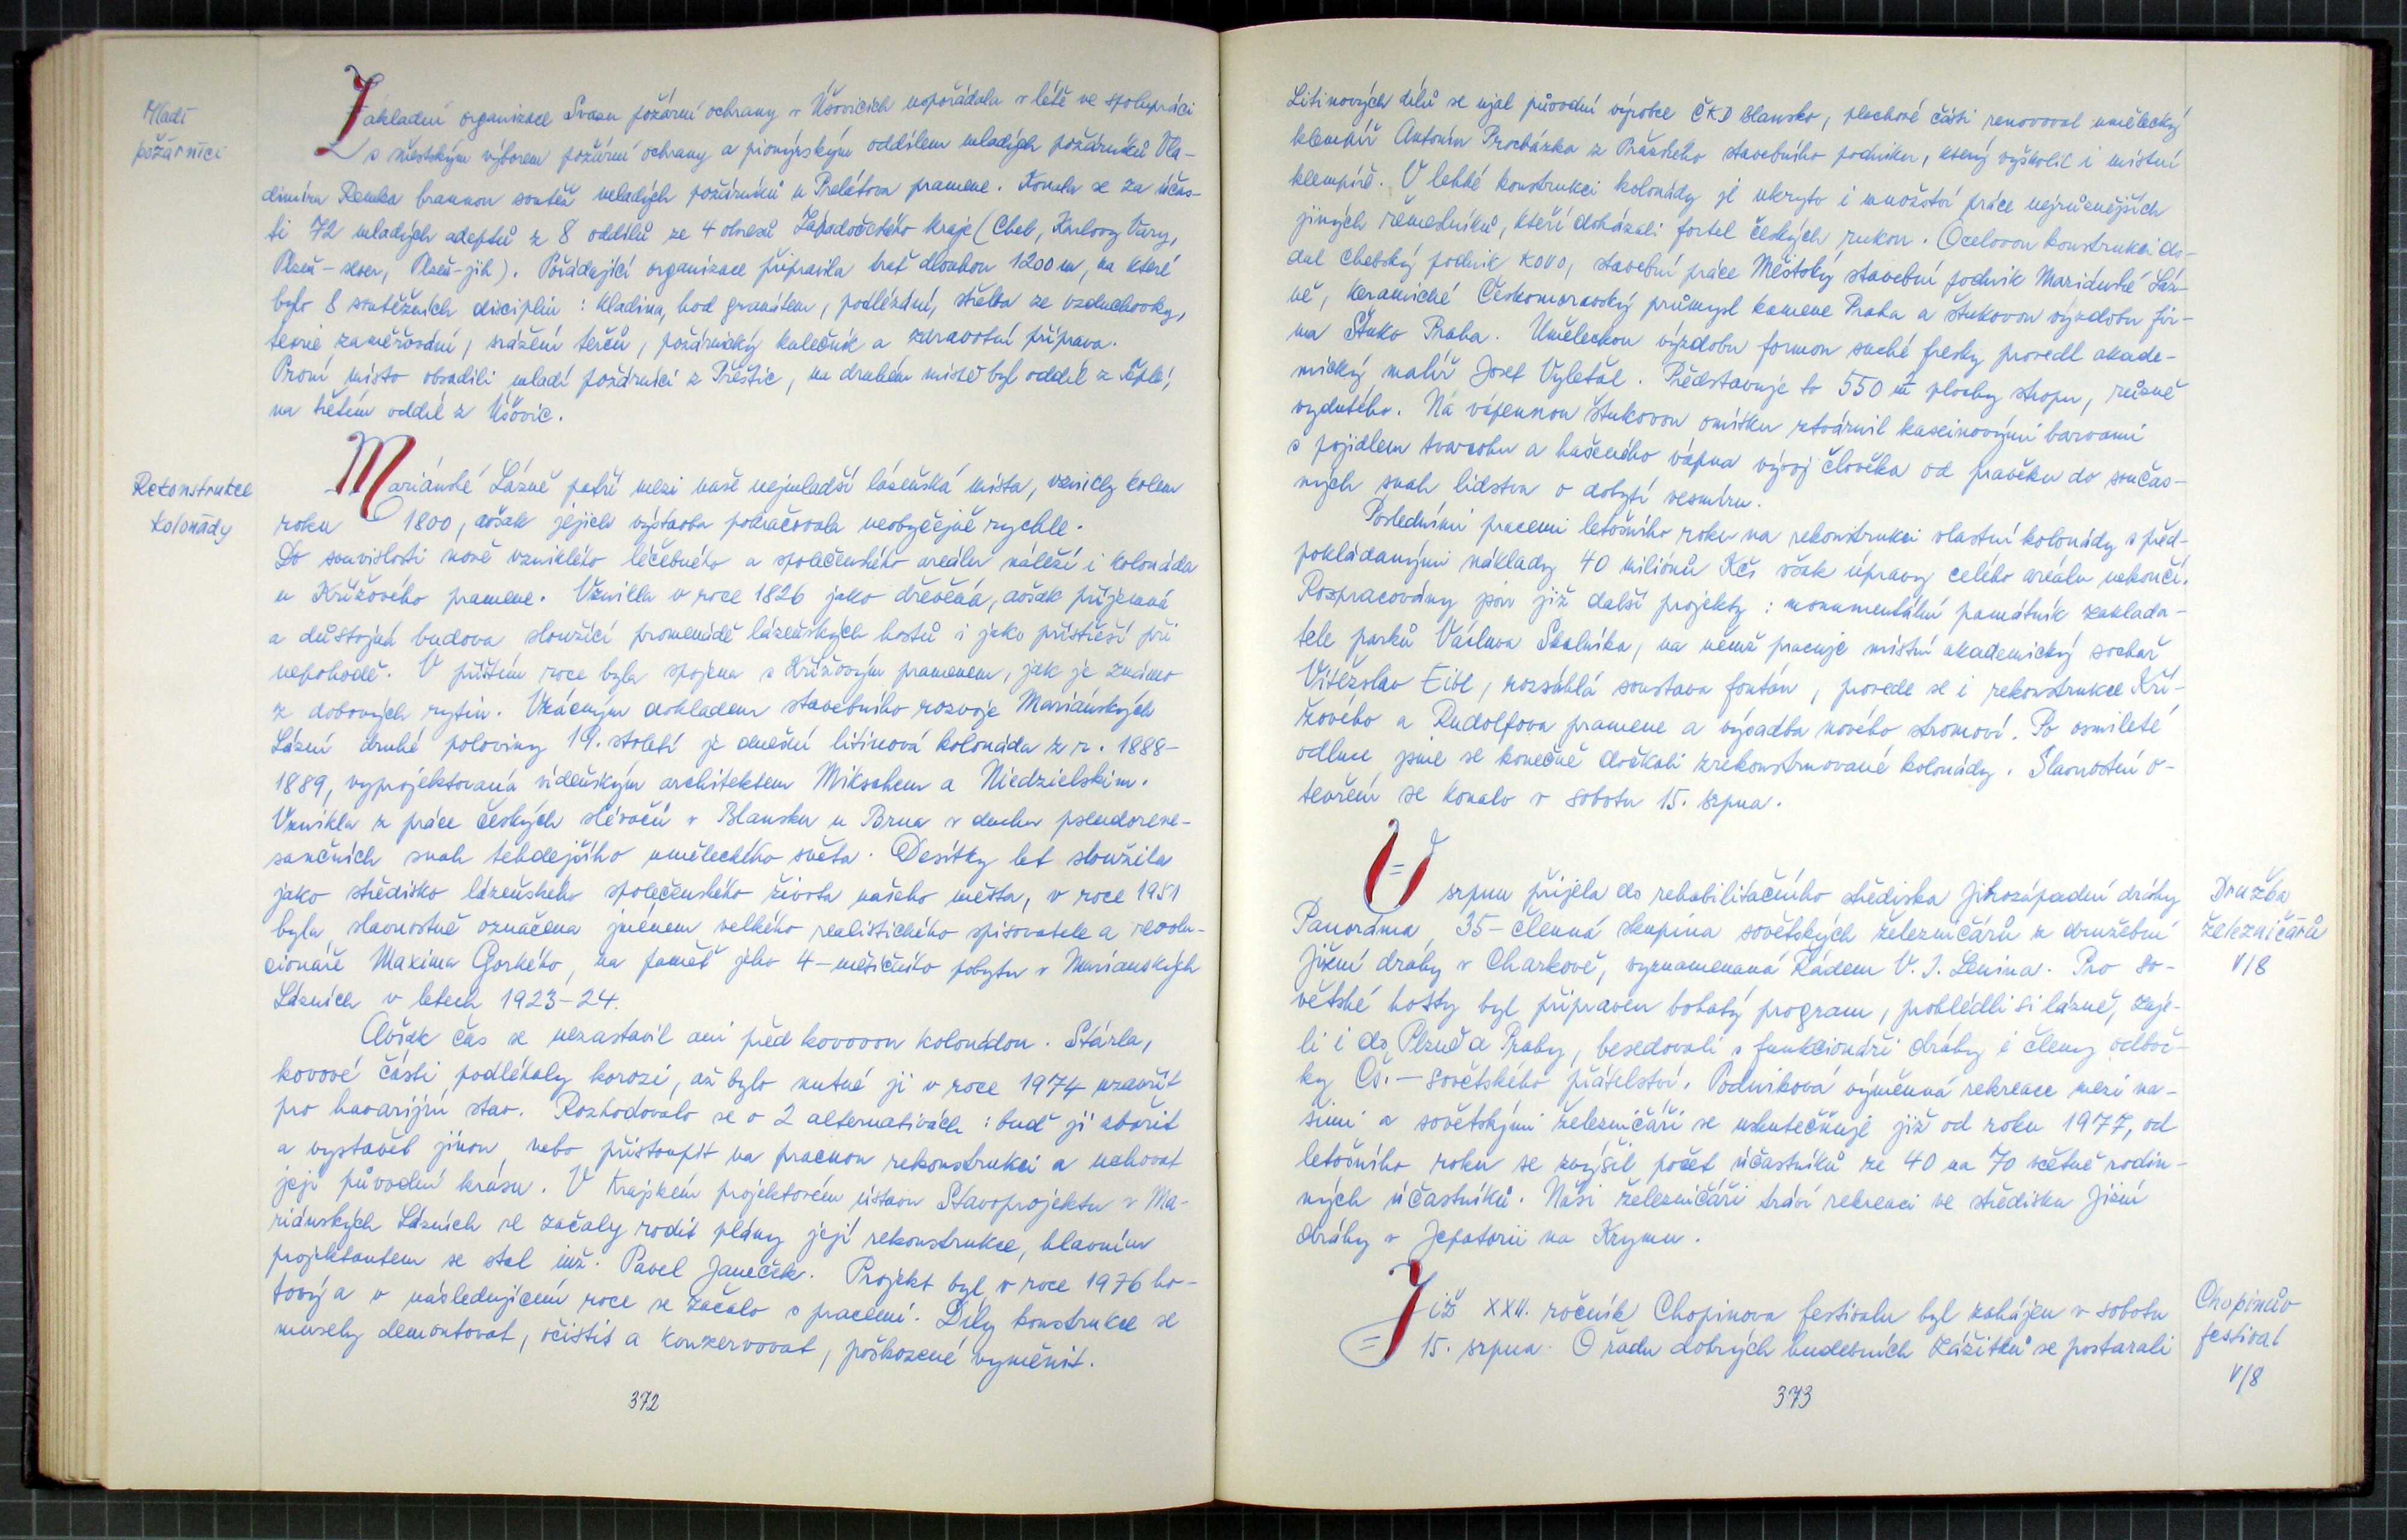 Mladí
požárníci
Základní organizace Svazu požární ochrany v Úšovicích uspořádala v létě ve spolupráci
s městským výborem požární ochrany a pionýrským oddílem mladých požárníků Vla-
dimíra Remka brannou soutěž mladých požárníků u Prelátova pramene. Konala se za účas-
ti 72 mladých adeptů z 8 oddílů ze 4 okresů Západočeského kraje (Cheb, Karlovy Vary,
Plzeň-sever, Plzeň-jih). Pořádající organizace připravila trať dlouhou 1200 m, na které
bylo 8 soutěžních disciplin: kladina, hod granátem, podlézání, střelba ze vzduchovky,
teorie zaměřování, srážení terčů, požárnický kulečník a zdravotní příprava.
První místo obsadili mladí požárníci z Přeštic, na druhém místě byl oddíl z Teplé,
na třetím oddíl z Úšovic.
Rekonstrukce
kolonády
Mariánské Lázně patří mezi naše nejmladší lázeňská místa, vznikly kolem
roku 1800, avšak jejich výstavba pokračovala neobyčejně rychle.
Do souvislosti nově vzniklého léčebného a společenského areálu náleží i kolonáda
u Křížového pramene. Vznikla v roce 1826 jako dřevěná, avšak příjemná
a důstojná budova sloužící promenádě lázeňských hostů i jako přístřeší při
nepohodě. V příštím roce byla spojena s Křížovým pramenem, jak je známo
z dobových rytin. Vzácným dokladem stavebního rozvoje Mariánských
Lázní druhé poloviny 19. století je dnešní litinová kolonáda z r. 1888-
1889, vyprojektovaná vídeňským architektem Mikschem a Niedzielskim.
Vznikla z práce českých slévačů v Blansku u Brna v duchu pseudorene-
sančních snah tehdejšího uměleckého světa. Desítky let sloužila
jako středisko lázeňského společenského života našeho města, v roce 1951
byla slavnostně označena jménem velkého realistického spisovatele a revolu-
cionáře Maxima Gorkého, na paměť jeho 4-měsíčního pobytu v Mariánských
Lázních v letech 1923-24.
Avšak čas se nezastavil ani před kovovou kolonádou. Stárla,
kovové části podléhaly korozi, až bylo nutné ji v roce 1974 uzavřít
pro havarijní stav. Rozhodovalo se o 2 alternativách: buď ji zbořit
a vystavět jinou, nebo přistoupit na pracnou rekonstrukci a uchovat
její původní krásu. V Krajském projektovém ústavu Stavoprojektu v Ma-
riánských Lázních se začaly rodit plány její rekonstrukce, hlavním
projektantem se stal inž. Pavel Janeček. Projekt byl v roce 1976 ho-
tový a v následujícím roce se začalo s pracemi. Díly konstrukce se
musely demontovat, očistit a konzervovat, poškozené vyměnit.
372
Litinových dílů se ujal původní výrobce ČKD Blansko, plechové části renovoval umělecký
klempíř Antonín Procházka z Pražského stavebního podniku, který vyškolil i místní
klempíře. V lehké konstrukci kolonády je ukryto i množství práce nejrůznějších
jiných řemeslníků, kteří dokázali fortel českých rukou. Ocelovou konstrukci do-
dal chebský podnik KOVO, stavební práce Městský stavební podnik Mariánské Láz-
ně, keramické Českomoravský průmysl kamene Praha a štukovou výzdobu fir-
ma Štuko Praha. Uměleckou výzdobu formou suché fresky provedl akade-
mický malíř Josef Vyleťal. Představuje to 550 m² plochy stropu, různě
vydutého. Na vápennou štukovou omítku ztvárnil kaseinovými barvami
s pojidlem tvarohu a hašeného vápna vývoj člověka od pravěku do součas-
ných snah lidstva o dobytí vesmíru.
Posledními pracemi letošního roku na rekonstrukci vlastní kolonády s před-
pokládanými náklady 40 miliónů Kčs však úpravy celého areálu nekončí.
Rozpracovány jsou již další projekty: monumentální památník zaklada-
tele parků Václava Skalníka, na němž pracuje místní akademický sochař
Vítězslav Eibl, rozsáhlá soustava fontán, provede se i rekonstrukce Kří-
žového a Rudolfova pramene a výsadba nového stromoví. Po osmileté
odluce jsme se konečně dočkali zrekonstruované kolonády. Slavnostní o-
tevření se konalo v sobotu 15. srpna.
V srpnu přijela do rehabilitačního střediska Jihozápadní dráhy
Panoráma 35-členná skupina sovětských železničářů z družební
Jižní dráhy v Charkově, vyznamenaná Řádem V. I. Lenina. Pro so-
větské hosty byl připraven bohatý program, prohlédli si lázně, zaje-
li i do Plzně a Prahy, besedovali s funkcionáři dráhy i členy odboč-
ky Čs.-sovětského přátelství. Podniková výměnná rekreace mezi na-
šimi a sovětskými železničáři se uskutečňuje již od roku 1977, od
letošního roku se zvýšil počet účastníků ze 40 na 70 včetně rodin-
ných účastníků. Naši železničáři tráví rekreaci ve středisku Jižní
dráhy v Jepatorii na Krymu.
Družba
železničářů
V/8
Již XXII. ročník Chopinova festivalu byl zahájen v sobotu
15. srpna. O řadu dobrých hudebních zážitků se postarali
Chopinův
festival
V/8
373